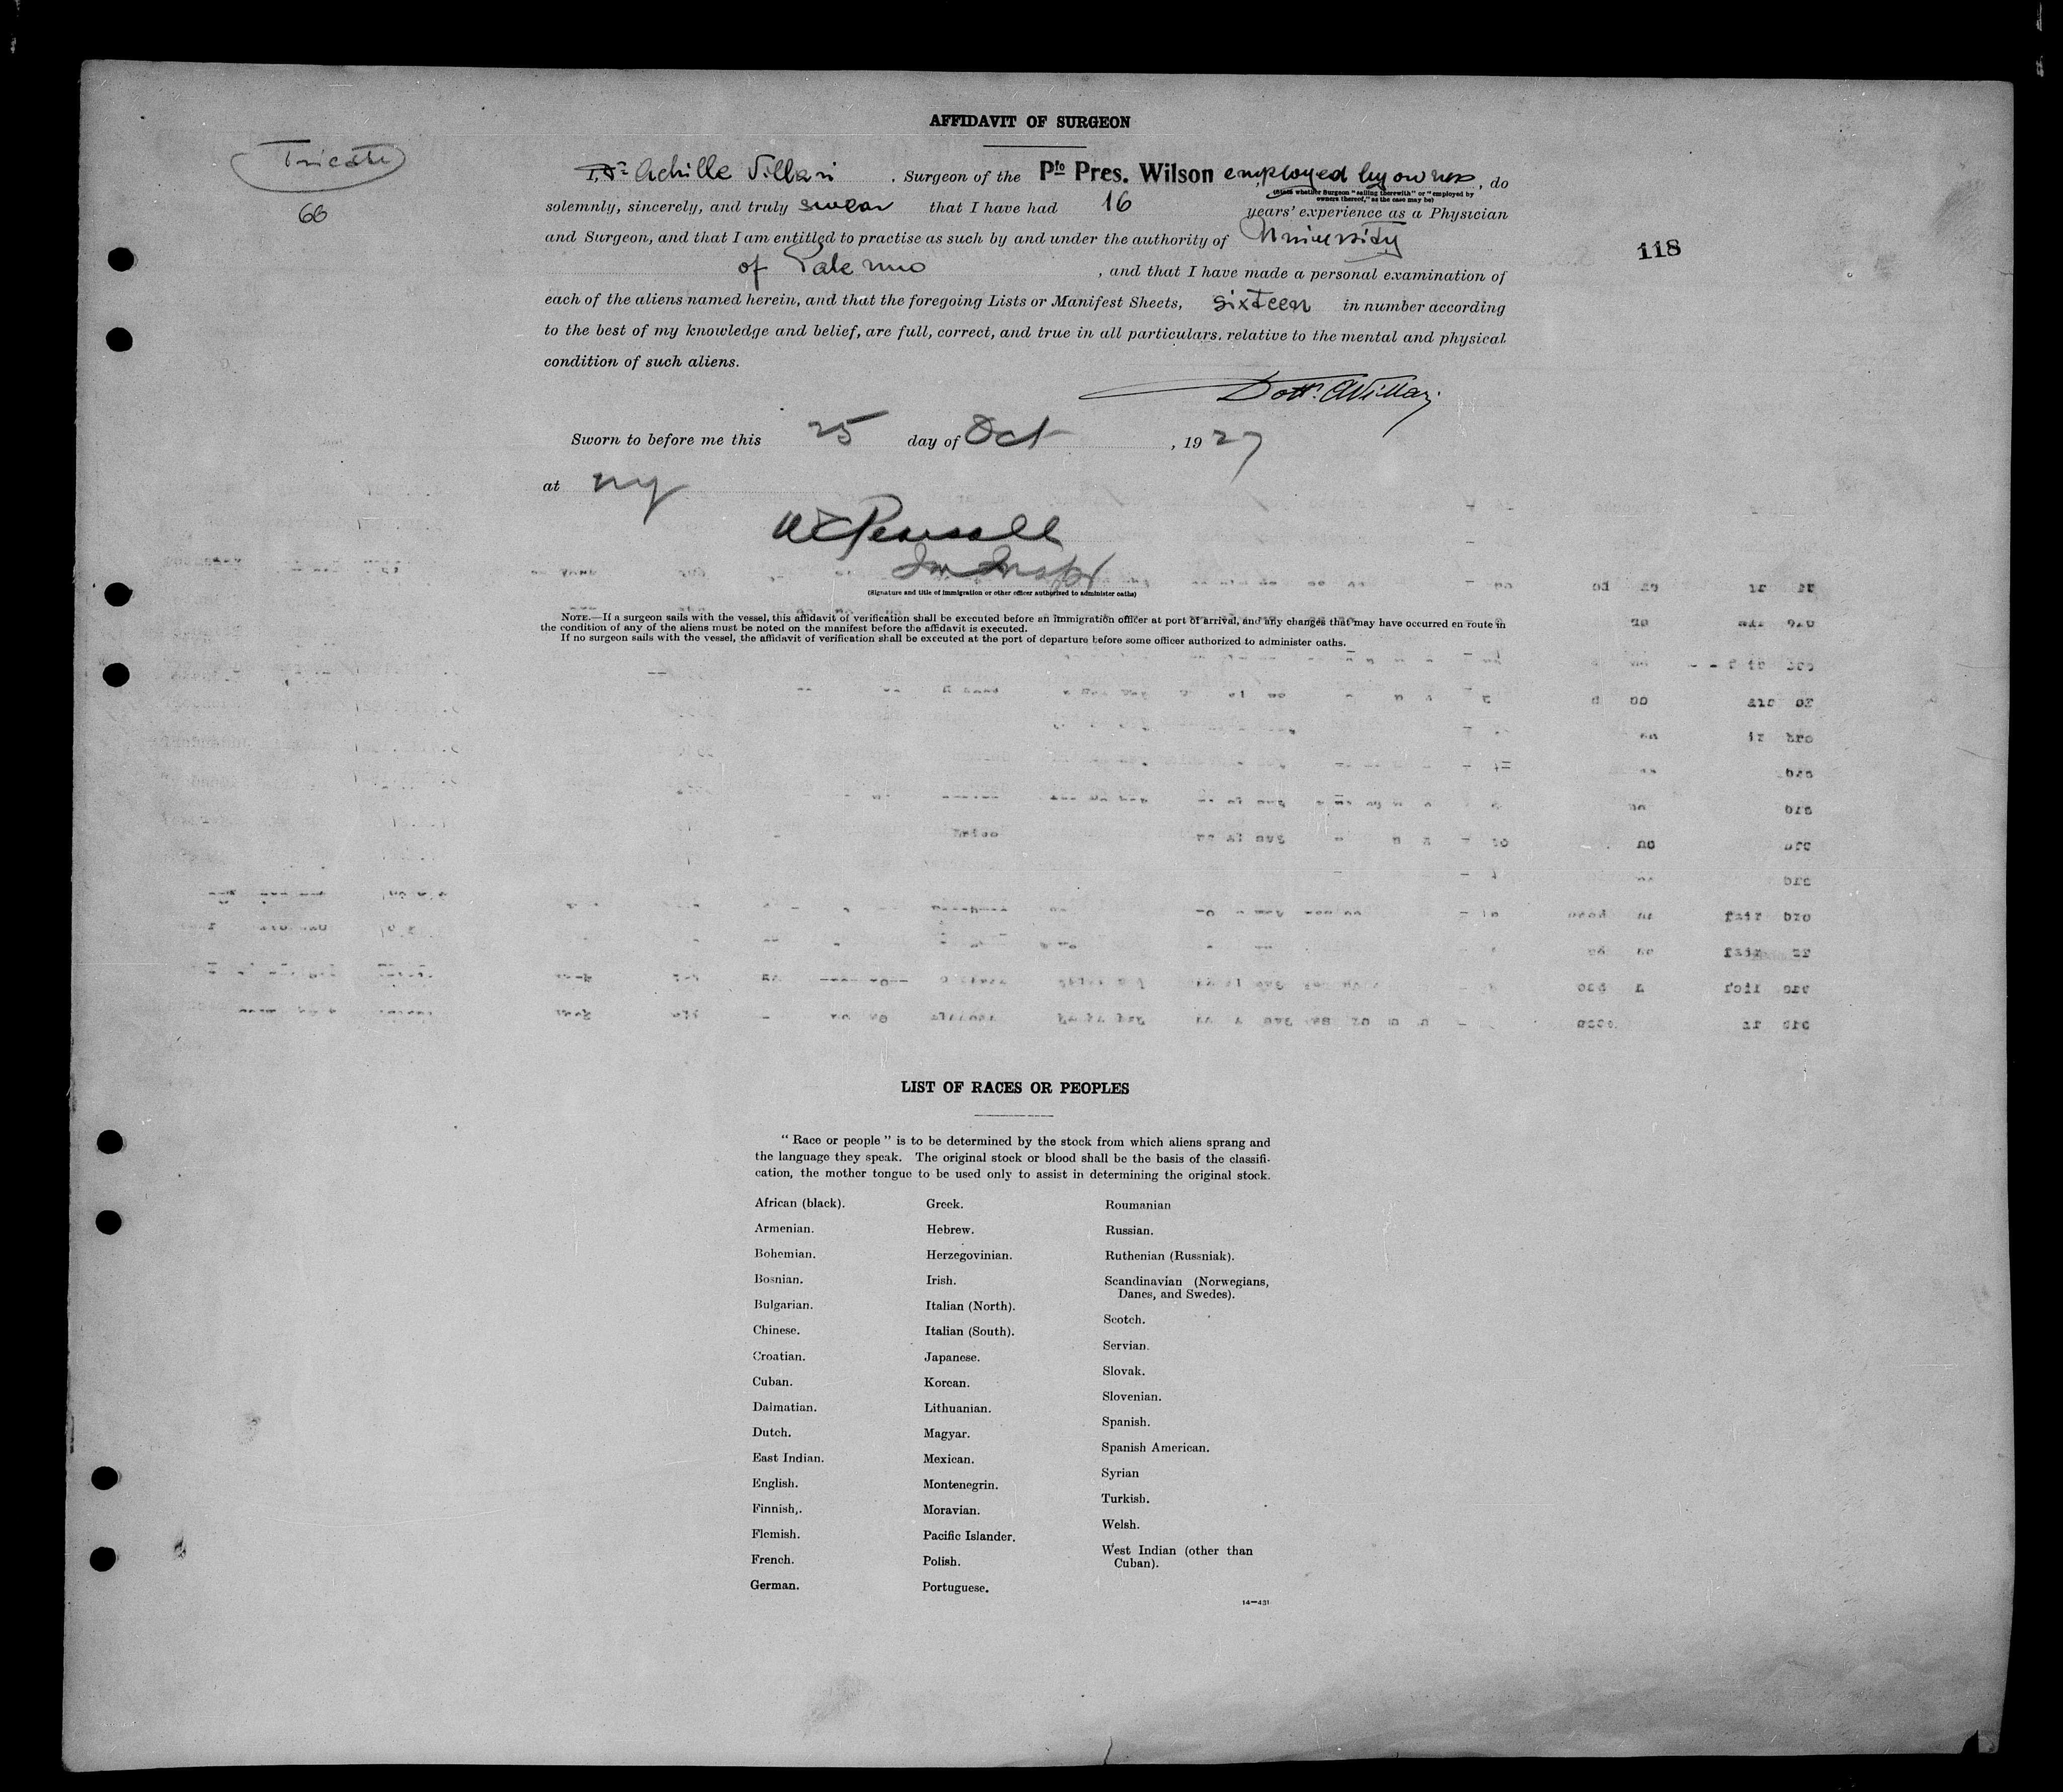 AFFIDAVIT OF SURGEON
Trieste
66
118
I, Dr Achille Villari, Surgeon of the Pfo Pres. Wilson employed by owners, do
(State whether Surgeon "sailing therewith" or "employed by owners thereof," as the case may be)
solemnly, sincerely, and truly swear that I have had 16 years' experience as a Physician
and Surgeon, and that I am entitled to practise as such by and under the authority of University
of Palermo, and that I have made a personal examination of
each of the aliens named herein, and that the foregoing Lists or Manifest Sheets, sixteen in number according
to the best of my knowledge and belief, are full, correct, and true in all particulars, relative to the mental and physical
condition of such aliens.
Dott. AVillari
Sworn to before me this 25 day of Oct, 1927
at ny
WEPearsall
Im Inspr
(Signature and title of immigration or other officer authorized to administer oaths)
NOTE.—If a surgeon sails with the vessel, this affidavit of verification shall be executed before an immigration officer at port of arrival, and any changes that may have occurred en route in
the condition of any of the aliens must be noted on the manifest before the affidavit is executed.
If no surgeon sails with the vessel, the affidavit of verification shall be executed at the port of departure before some officer authorized to administer oaths.
LIST OF RACES OR PEOPLES
"Race or people" is to be determined by the stock from which aliens sprang and
the language they speak. The original stock or blood shall be the basis of the classifi-
cation, the mother tongue to be used only to assist in determining the original stock.
African (black).
Armenian.
Bohemian.
Bosnian.
Bulgarian.
Chinese.
Croatian.
Cuban.
Dalmatian.
Dutch.
East Indian.
English.
Finnish,.
Flemish.
French.
German.
Greek.
Hebrew.
Herzegovinian.
Irish.
Italian (North).
Italian (South).
Japanese.
Korean.
Lithuanian.
Magyar.
Mexican.
Montenegrin.
Moravian.
Pacific Islander.
Polish.
Portuguese.
Roumanian
Russian.
Ruthenian (Russniak).
Scandinavian (Norwegians,
Danes, and Swedes).
Scotch.
Servian.
Slovak.
Slovenian.
Spanish.
Spanish American.
Syrian
Turkish.
Welsh.
West Indian (other than
Cuban).
14—431